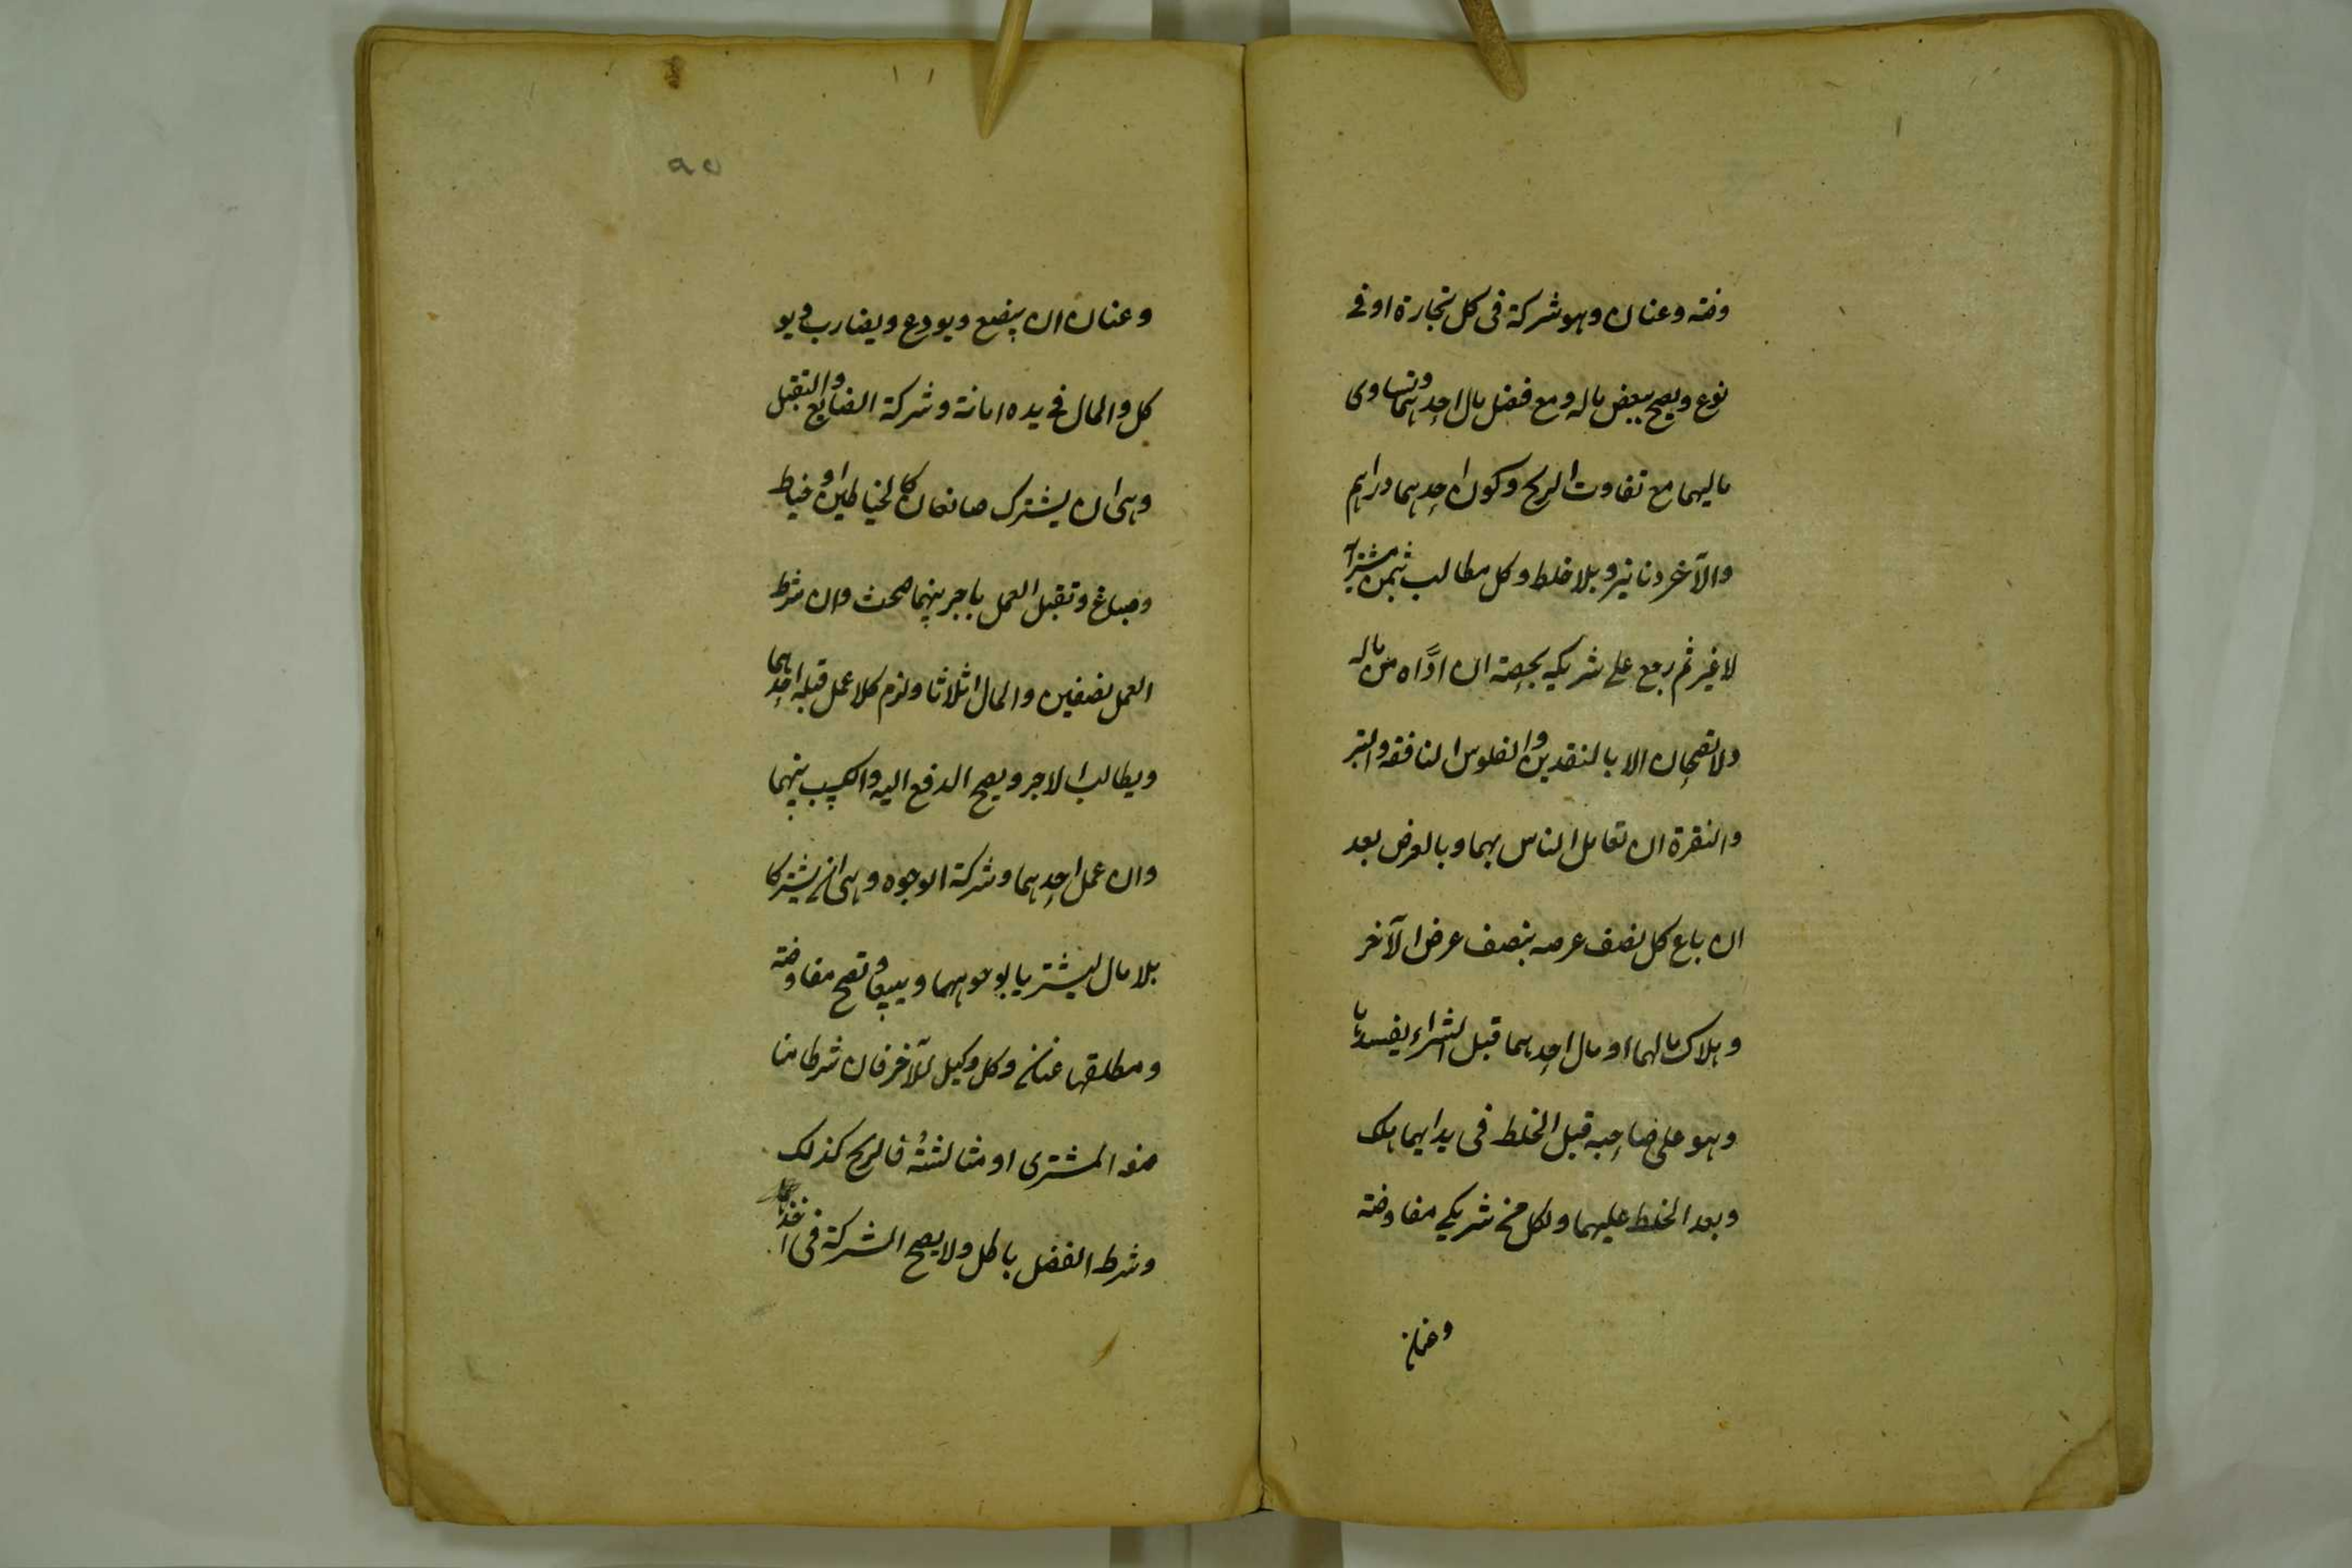 وضة وعنان وهو شركة فى كل تجارة او فے
نوع ويصح ببعض ماله ومع فضل مال احدهما وتساوى
ماليهما مع تفاوت الربح وكون احدهما دراهم
والآخر دنانير وبلا خلط وكل مطالب بثمن مشتراه
لا غير ثم رجع على شريكه بحصته ان ادَّاه من ماله
ولا تصحان الا بالنقدين والفلوس النافقه والتبر
والنقرة ان تعامل الناس بهما وبالعرض بعد
ان باع كل نصف عرضه بنصف عرض الآخر
وهلاك مالهما او مال احدهما قبل الشراء يفسدها
وهو على صاحبه قبل الخلط فى يد ايهما هلك
وبعد الخلط عليهما ولكل من شريكے مفاوضة
وعنان
٩٥
وعنان ان يبضع ويودع ويضارب ويو
كل والمال فے يده امانة وشركة الصنايع والتقبل
وهى ان يشترك صانعان كالخياطين او خياط
وصباغ وتقبل العمل باجر بينهما صحت وان شرط
العمل نصفين والمال اثلاثا ولزم كلا عمل قبله احدهما
ويطالب الاجر ويصح الدفع اليه والكسب بينهما
وان عمل احدهما وشركة الوجوه وهى ان يشتركا
بلا مال ليشتريا بوجوههما ويبيعا وتصح مفاوضة
ومطلقها عنان وكل وكيل للآخر فان شرطا منا
صفة المشترى او مثالثته فالربح كذلك
وشرط الفضل باطل ولا يصح الشركة فى اخذ ما